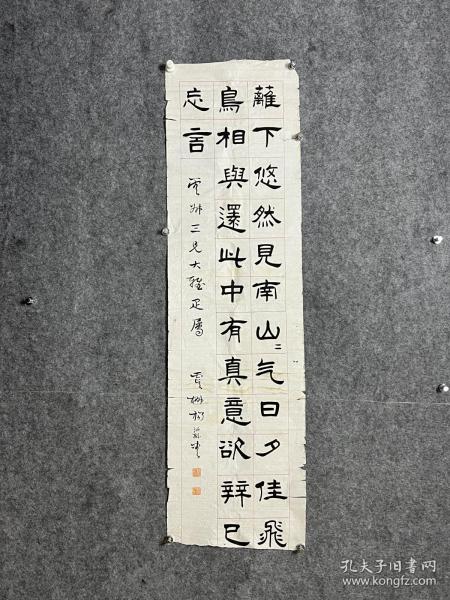 蘺下悠然見南山二气日夕佳飛
鳥相與還此中有真意欲辨已
忘言
三兄大雅正屬
孔夫子旧书网
www.kongfz.com